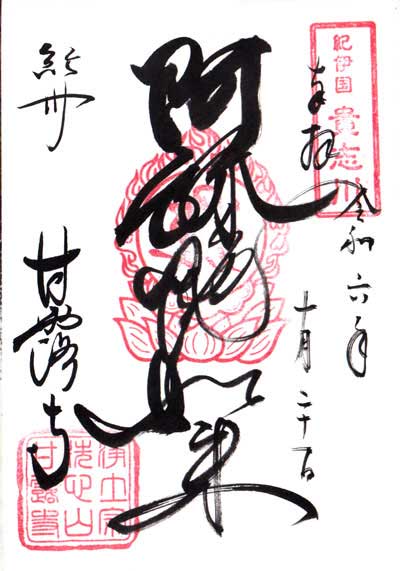 紀伊国
貴志川
奉拝
令和六年
十月二十一日
阿彌陀如来
紀州
甘露寺
浄土宗
洗心山
甘露寺